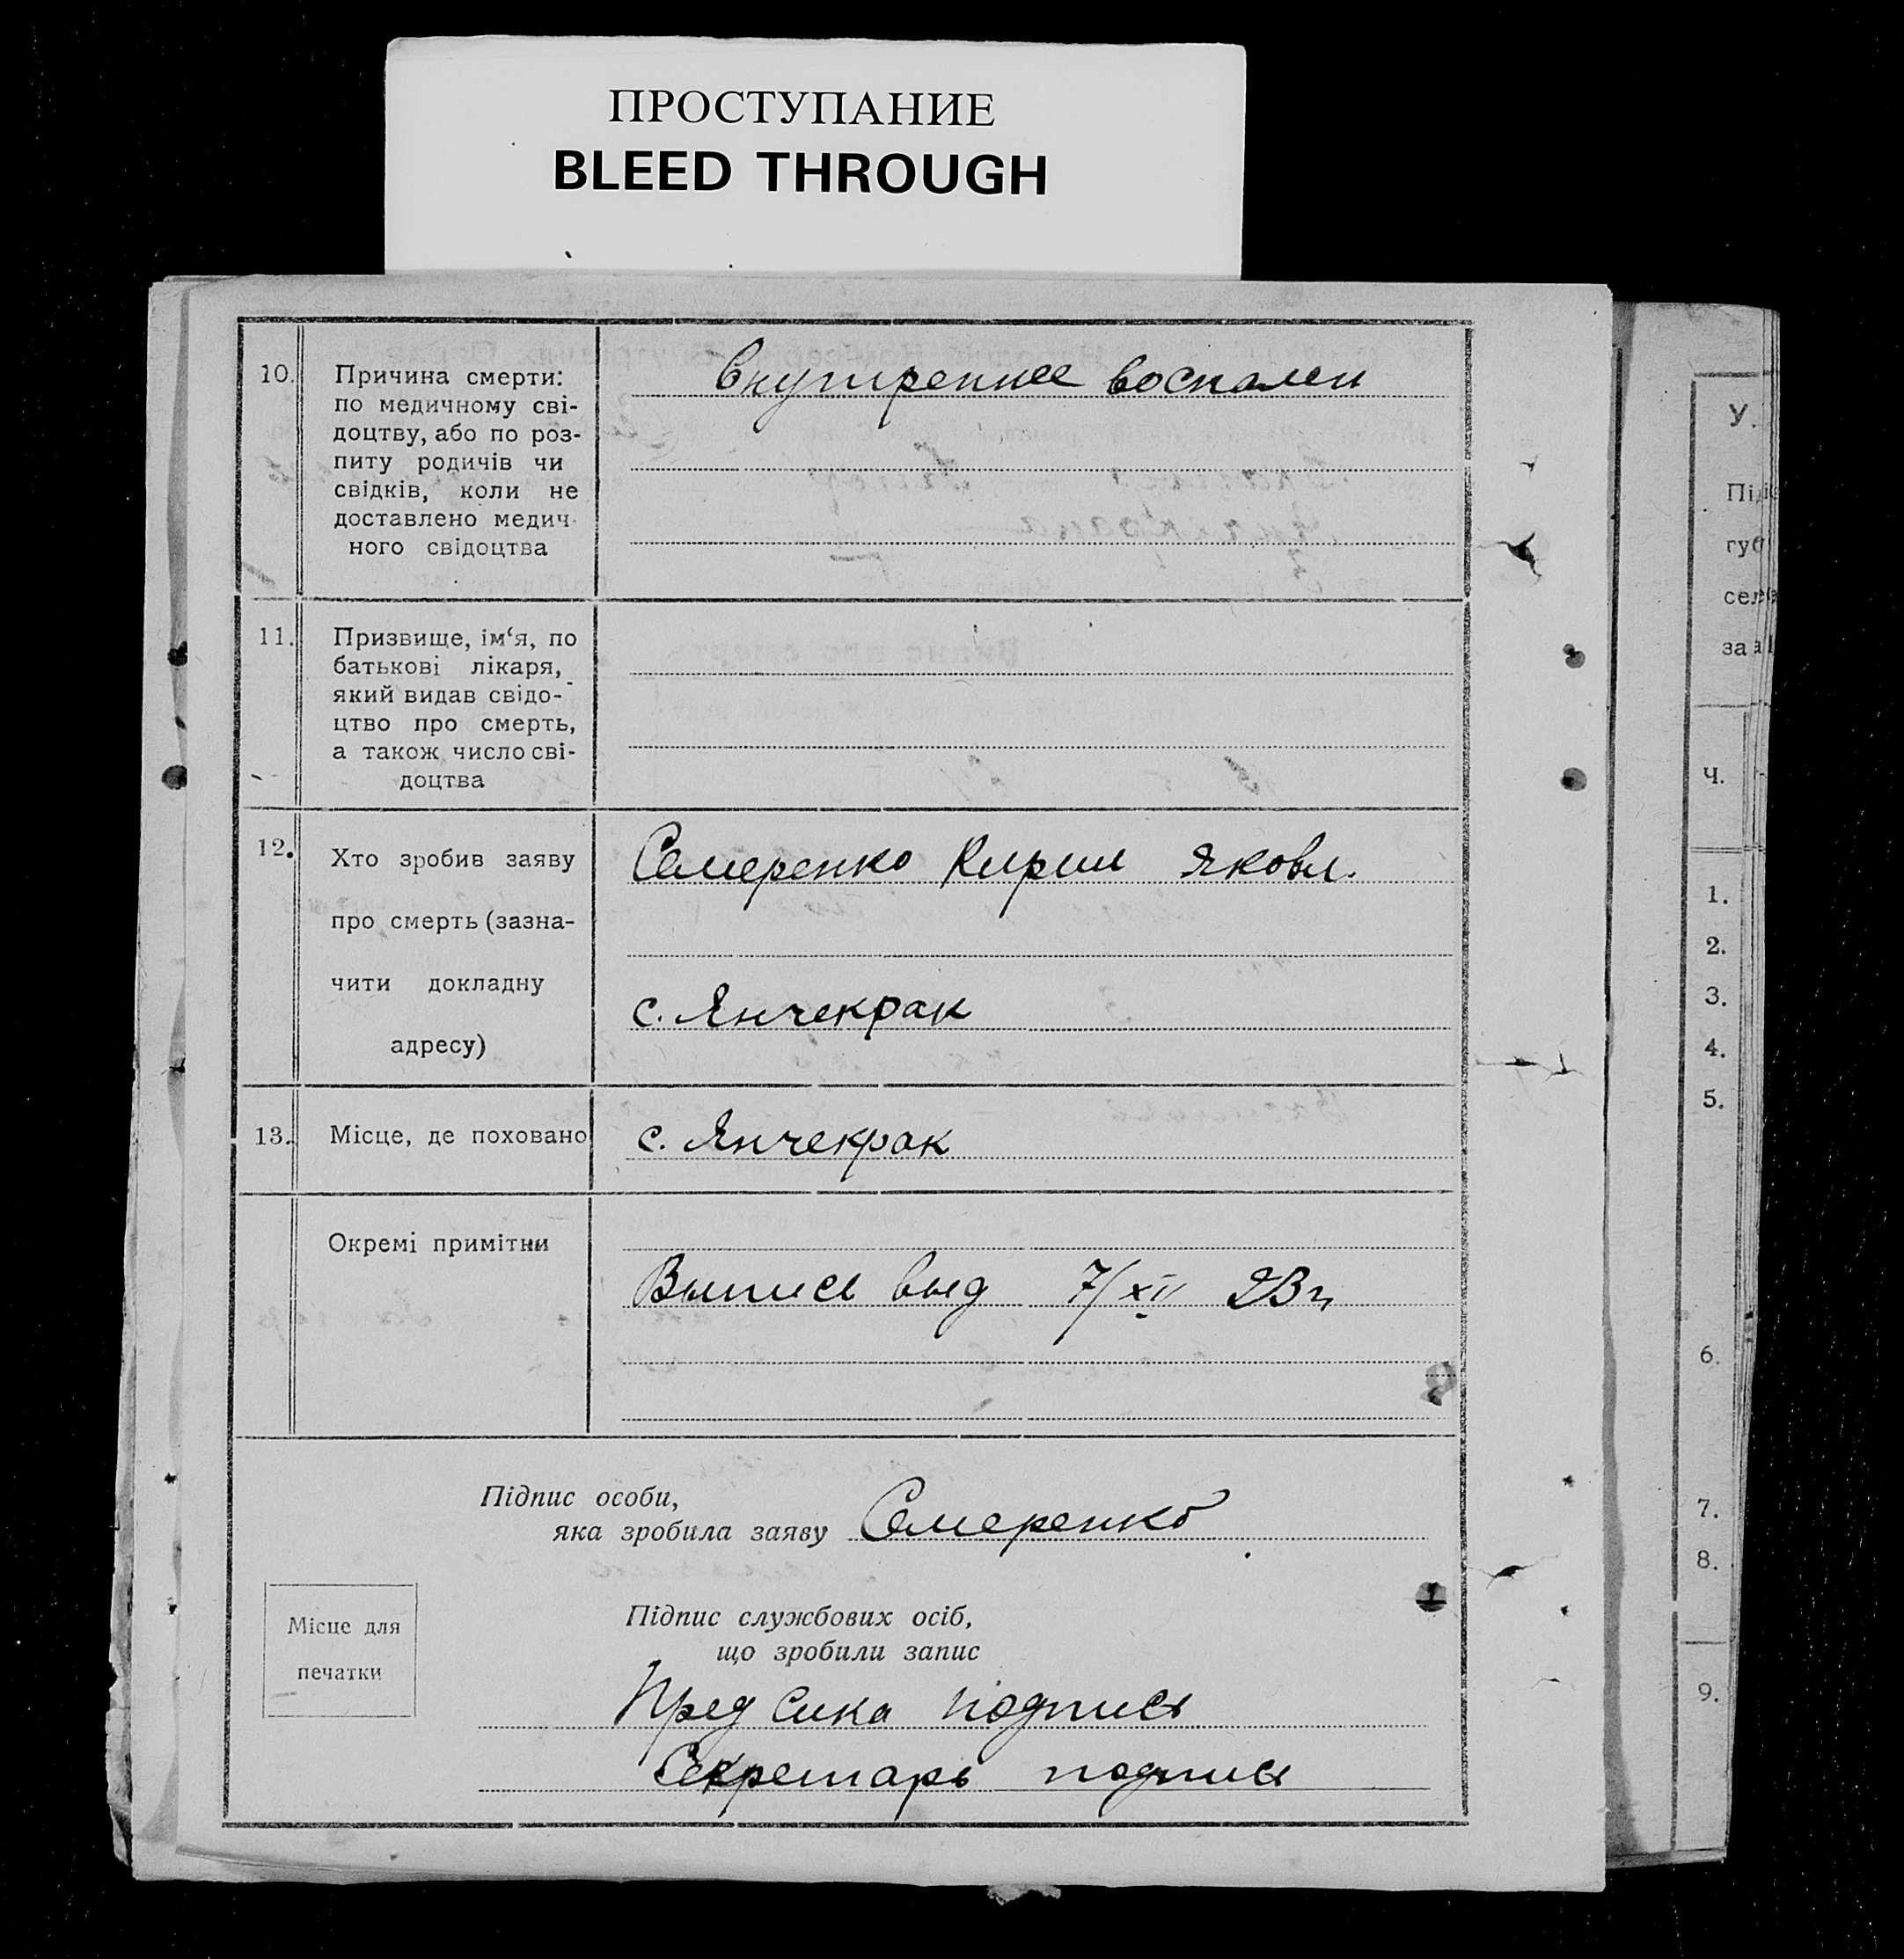 ПРОСТУПАНИЕ
BLEED THROUGH
10. Причина смерти:
по медичному сві-
доцтву, або по роз-
питу родичів чи
свідків, коли не
доставлено медич-
ного свідоцтва
внутреннее воспален
11. Призвище, ім‘я, по
батькові лікаря,
який видав свідо-
цтво про смерть,
а також число сві-
доцтва
12. Хто зробив заяву
про смерть (зазна-
чити докладну
адресу)
Семеренко Кирил Яковл.
с. Янчекрак
13. Місце, де поховано
с. Янчекрак
Окремі примітки
Выпись выд 7/XII 23 г,
Підпис особи,
яка зробила заяву Семеренко
Місце для
печатки
Підпис службових осіб,
що зробили запис
Пред Сика подпись
Секретарь подпись
У.
Під
губ
сел
за
Ч.
1.
2.
3.
4.
5.
6.
7.
8.
9.